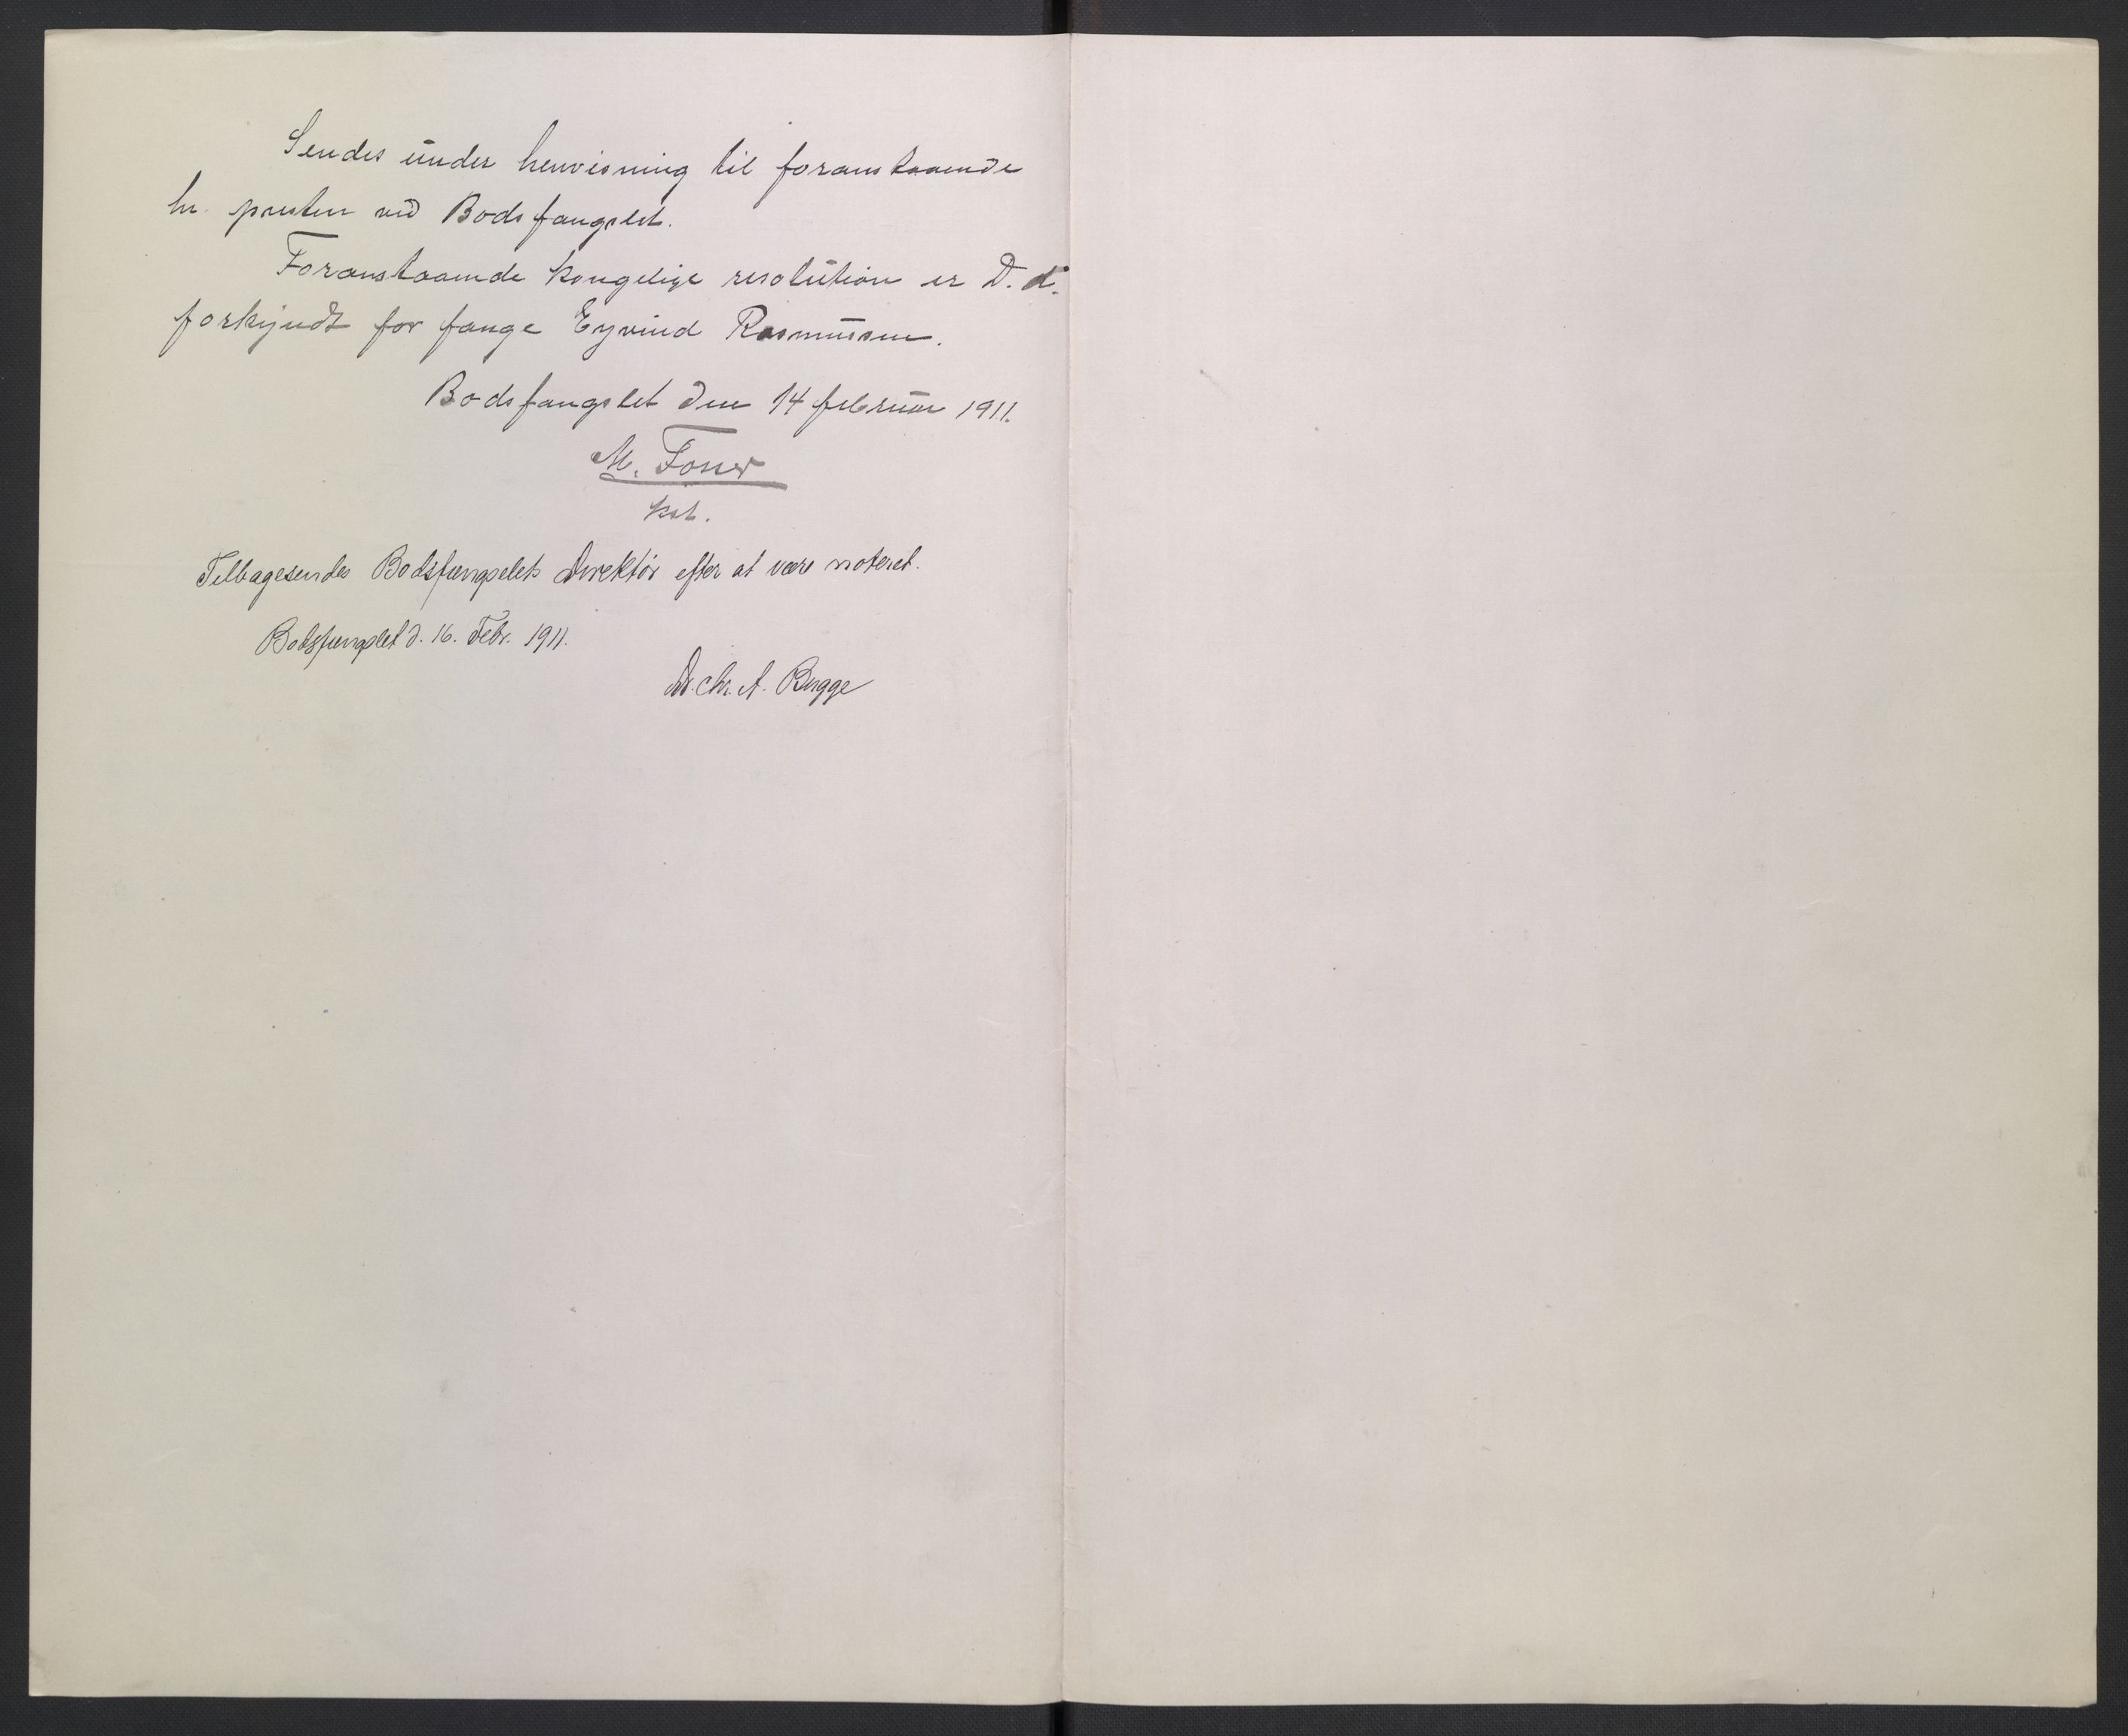 Sendes under henvisning til foranstaaende
hr. presten ved Bodsfængslet.
Foranstaaende kongelige resolution er D. d.
forkyndt for fange Eyvind Rasmussen.
Bodsfængslet den 14 februar 1911.
M. Fosser
kst.
Tilbagesendes Bodsfængselets Direktør efter at være noteret.
Bodsfængslet d. 16. Febr. 1911.
Dr. Chr. A. Bugge